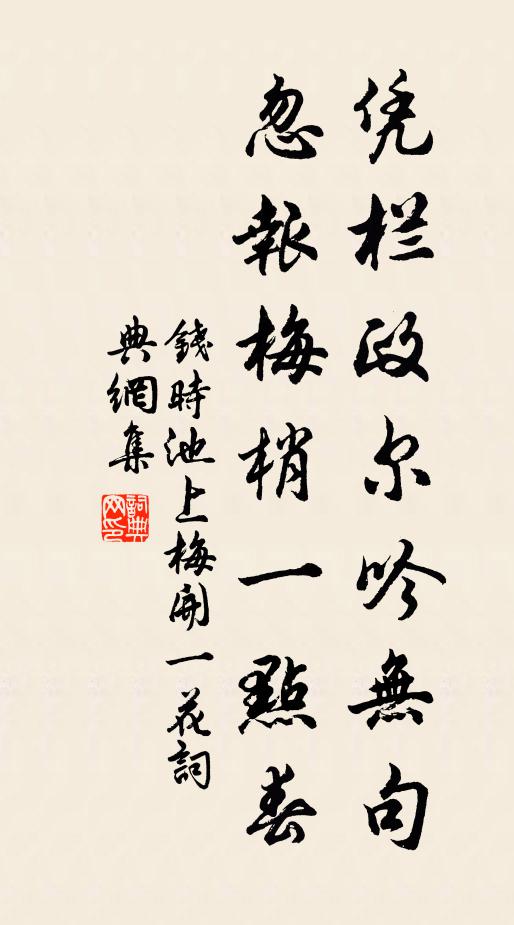 凭栏政尔吟無句
忽報梅梢一點春
錢時池上梅開一花詞
典網集
詞典網印